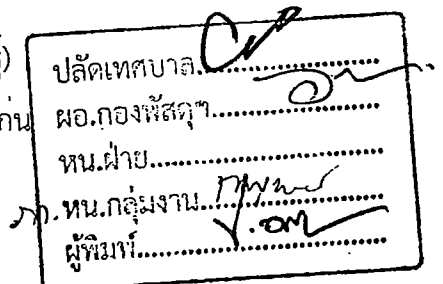 ปลัดเทศบาล....................
ก่น ผอ.กองพัสดุฯ....................
หน.ฝ่าย....................
หน.กลุ่มงาน....................
ผู้พิมพ์....................